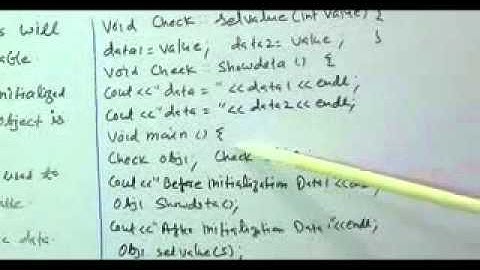 s will
able
initialized
object is
used to
able
data.
Void Check : setvalue (int value) {
data1 = value, data2 = value, }
Void Check : showdata () {
Cout <<"data = "<< data1 << endl;
Cout <<"data = "<< data2 << endl;
Void main () {
Check obj1, Check
Cout <<"Before initialization Data1 <<
Obj1 Showdata(),
Cout <<"After initialization Data1"<<endl;
Obj1 setvalue(5);